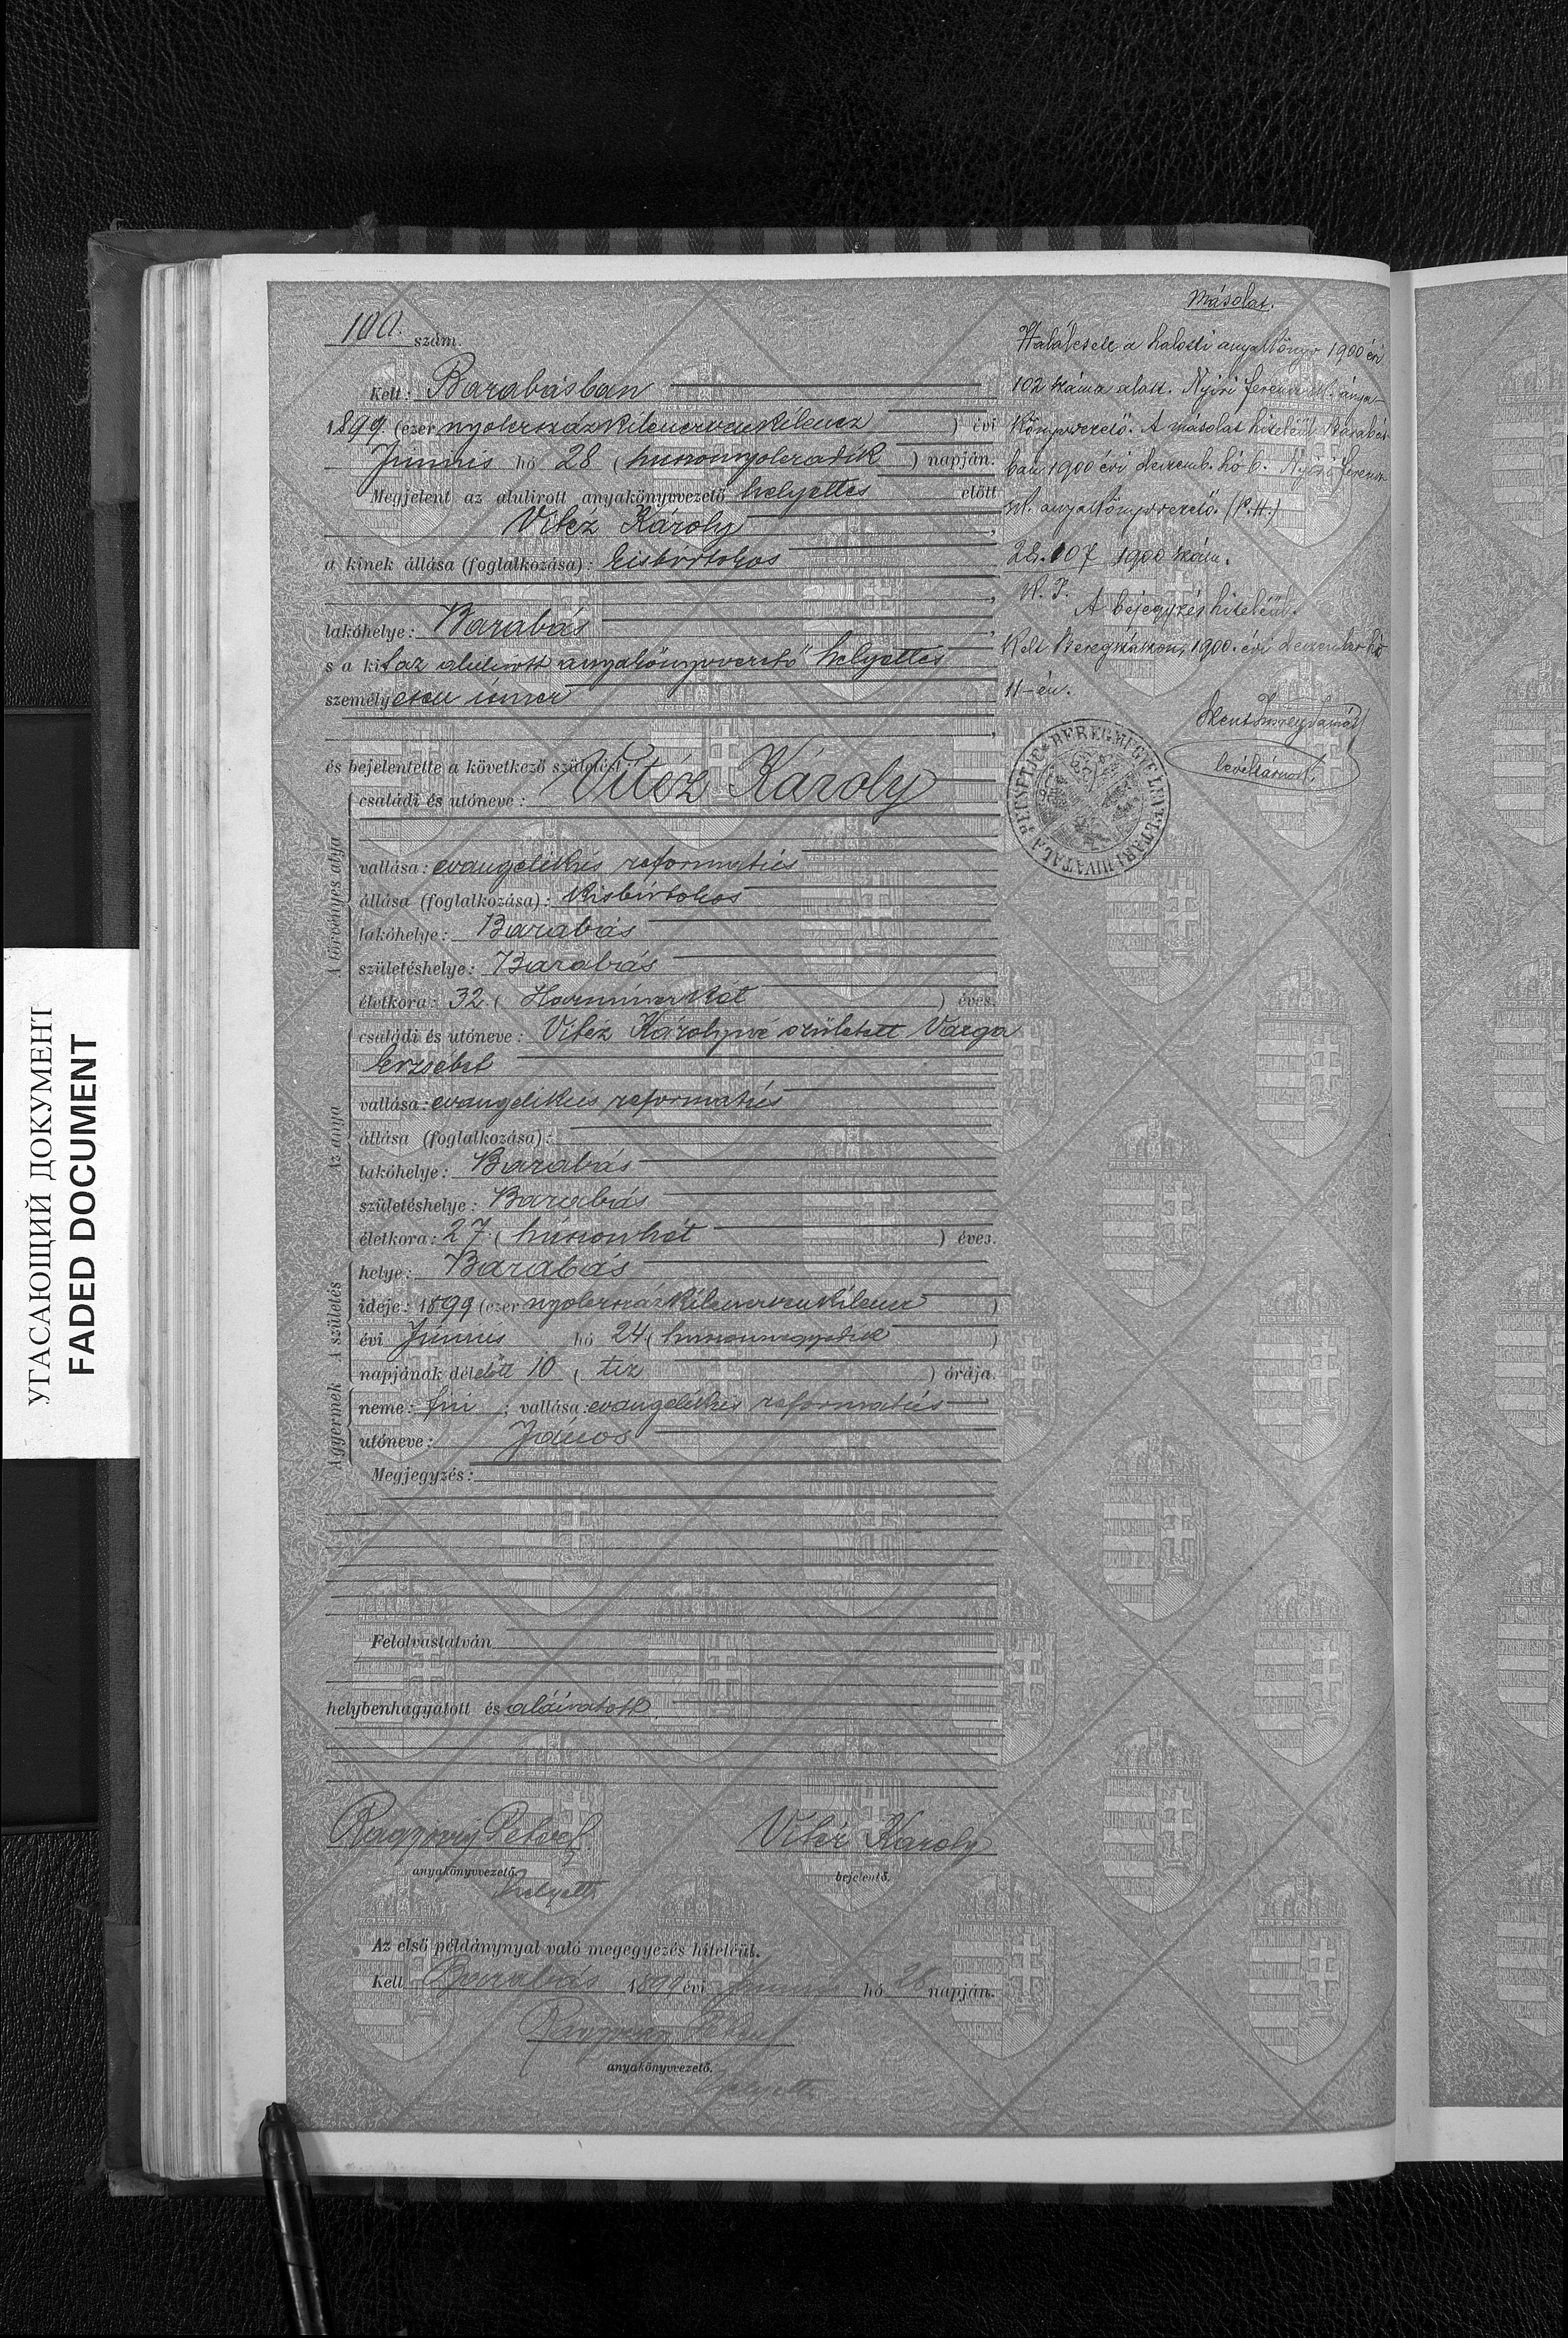 УГАСАЮЩИЙ ДОКУМЕНТ
FADED DOCUMENT
100. szám.
Kelt: Barabásban
1899. (ezer nyolczszázkilenczvenkilencz) évi
Junius hó 28 (huszonnyolczadik) napján.
Megjelent az alulirott anyakönyvvezető helyettes előtt
Vitéz Károly,
a kinek állása (foglalkozása): kisbirtokos
lakóhelye: Barabás,
s a kit az alulirott anyakönyvvezető helyettes
személyesen ismer,
és bejelentette a következő születést:
A törvényes atya
családi és utóneve: Vitéz Károly
vallása: evangelikus reformatus
állása (foglalkozása): Kisbirtokos
lakóhelye: Barabás
születéshelye: Barabás
életkora: 32 (Harminczkét) éves.
Az anya
családi és utóneve: Vitéz Károlyné született Varga
Erzsébet
vallása: evangelikus reformatus
állása (foglalkozása):
lakóhelye: Barabás
születéshelye: Barabás
életkora: 27 (huszonhét) éves.
A születés
helye: Barabás
ideje: 1899 (ezer nyolczszázkilenczvenkilencz)
évi Junius hó 24 (huszonnegyedik)
napjának délelőtt 10 (tíz) órája.
A gyermek
neme: fiu; vallása: evangelikus reformatus
utóneve: János
Megjegyzés:
Felolvastatván
helybenhagyatott és aláiratott
Vitéz Károly
anyakönyvvezető. bejelentő.
helyett.
Az első példánynyal való megegyezés hiteléül.
Kelt Barabás 1899 évi Junius hó 28 napján.
anyakönyvvezető.
helyett.
Másolat.
Halálesete a halotti anyakönyv 1900 évi
102 száma alatt. Nyiri Ferencz s.k. anya-
könyvvezető. A másolat hiteléül Barabás-
ban 1900 évi deczemb. hó 6. Nyiri Ferencz
s.k. anyakönyvvezető. (P.H.)
28.107 1900 szám.
A bejegyzés hiteléül.
Kelt Beregszászon, 1900. évi deczember hó
11-én.
levéltárnok.
BEREGMEGYE LEVÉLTÁRI HIVATALA PECSÉTJE